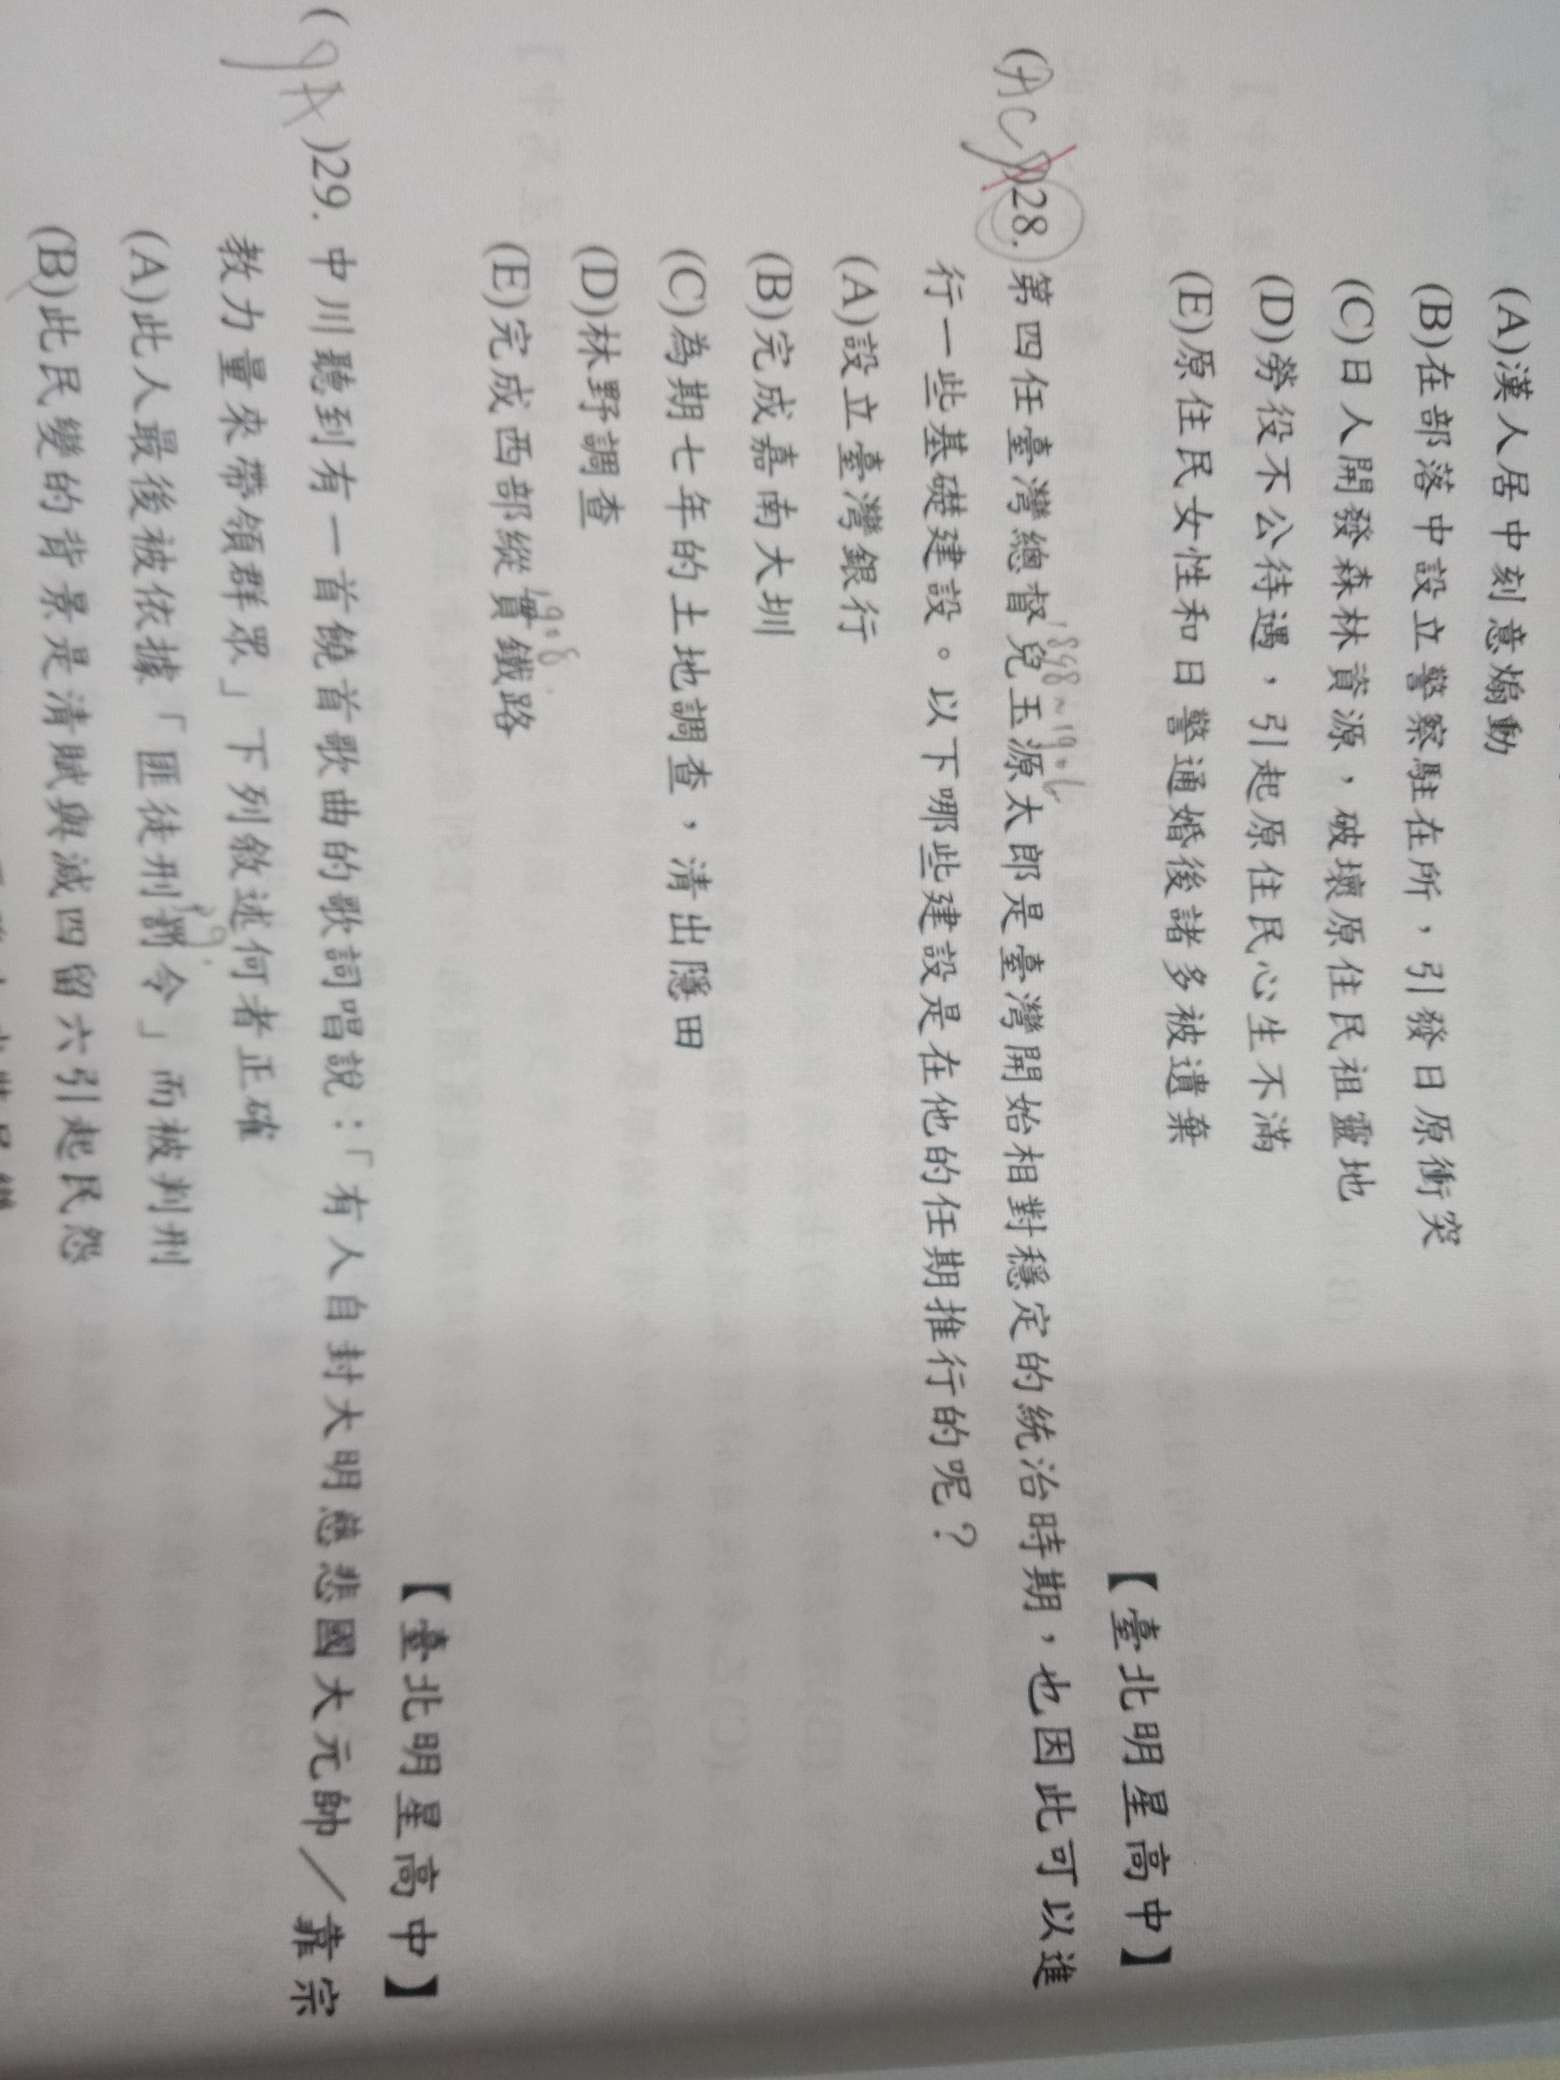 (A)漢人居中刻意煽動
(B)在部落中設立警察駐在所，引發日原衝突
(C)日人開發森林資源，破壞原住民祖靈地
(D)勞役不公待遇，引起原住民心生不滿
(E)原住民女性和日警通婚後諸多被遺棄
【臺北明星高中】
1898~1906
(AC)28.第四任臺灣總督兒玉源太郎是臺灣開始相對穩定的統治時期，也因此可以進
行一些基礎建設。以下哪些建設是在他的任期推行的呢？
(A)設立臺灣銀行
(B)完成嘉南大圳
(C)為期七年的土地調查，清出隱田
(D)林野調查
1908
(E)完成西部縱貫鐵路
【臺北明星高中】
(A)29.中川聽到有一首饒首歌曲的歌詞唱說：「有人自封大明慈悲國大元帥／靠宗
教力量來帶領群眾」下列敘述何者正確
(A)此人最後被依據「匪徒刑罰令」而被判刑
(B)此民變的背景是清賦與減四留六引起民怨